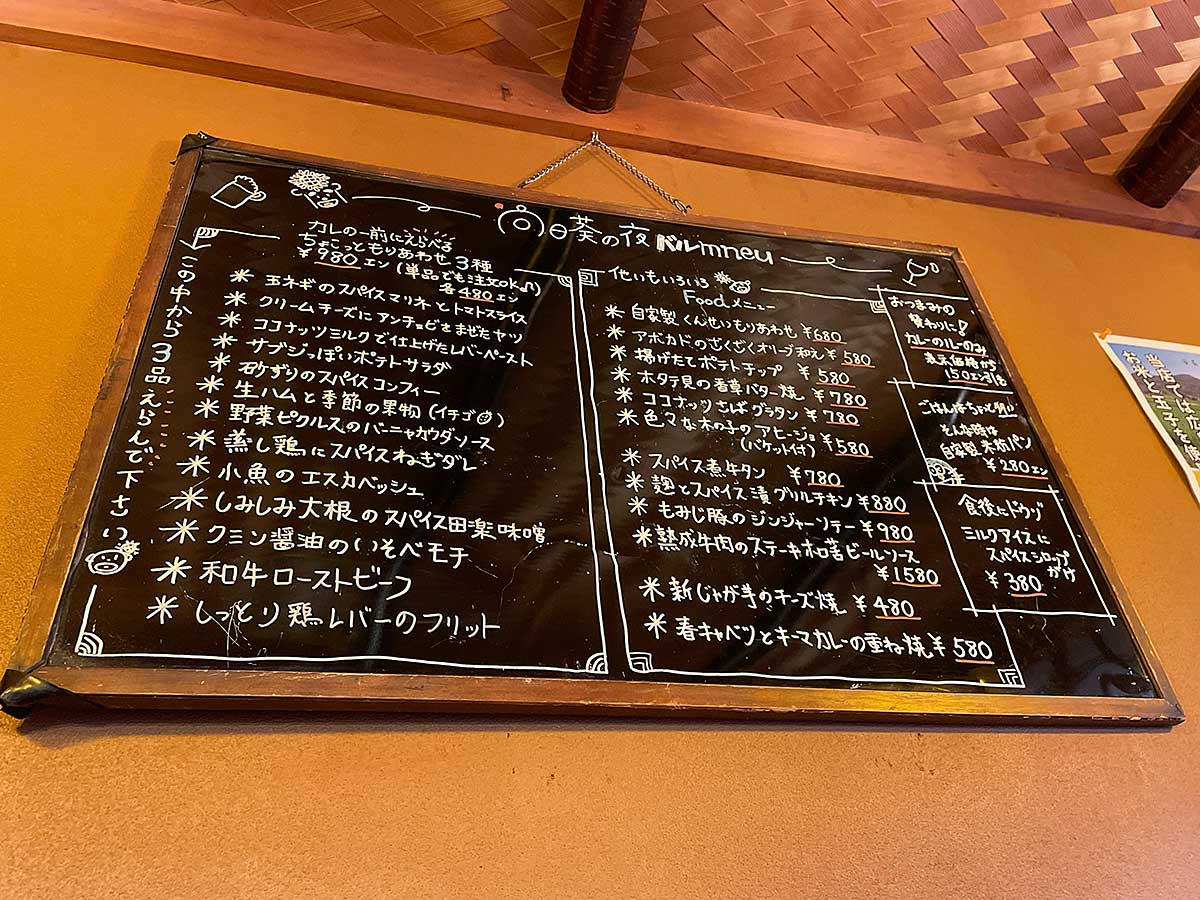 向日葵の夜 バルmneu
カレの一前にえらべる
ちょこっともりあわせ3種
¥980エン(単品でも注文OK♪)
各480エン
この中から3品えらんで下さい
玉ネギのスパイスマリネとトマトスライス
クリームチーズにアンチョビをまぜたヤツ
ココナッツミルクで仕上げたレバーペースト
サブジっぽいポテトサラダ
砂ずりのスパイスコンフィー
生ハムと季節の果物(イチゴ)
野菜ピクルスのバーニャカウダソース
蒸し鶏にスパイスねぎダレ
小魚のエスカベッシュ
しみしみ大根のスパイス田楽味噌
クミン醤油のいそべモチ
和牛ローストビーフ
しっとり鶏レバーのフリット
他いもいろいろ
Foodメニュー
自家製くんせいもりあわせ ¥680
アボカドのざくざくオリーブ和え ¥580
揚げたてポテトチップ ¥580
ホタテ貝の香草バター焼 ¥780
ココナッツさばグラタン ¥780
色々な木の子のアヒージョ ¥580
(バケット付)
スパイス煮牛タン ¥780
麹とスパイス漬グリルチキン ¥880
もみじ豚のジンジャーソテー ¥980
熟成牛肉のステーキ木口苔ビールソース
¥1580
新じゃが芋のチーズ焼 ¥480
春キャベツとキーマカレーの重ね焼 ¥580
おつまみの
替わりに!
カレーのルーのみ
表示価格から
150エン引き
ごはんはちょっと重い
そんな時は
自家製 米粉パン
¥280エン
食後にドウゾ
ミルクアイスに
スパイスシロップ
がけ
¥380
当店では
お米と